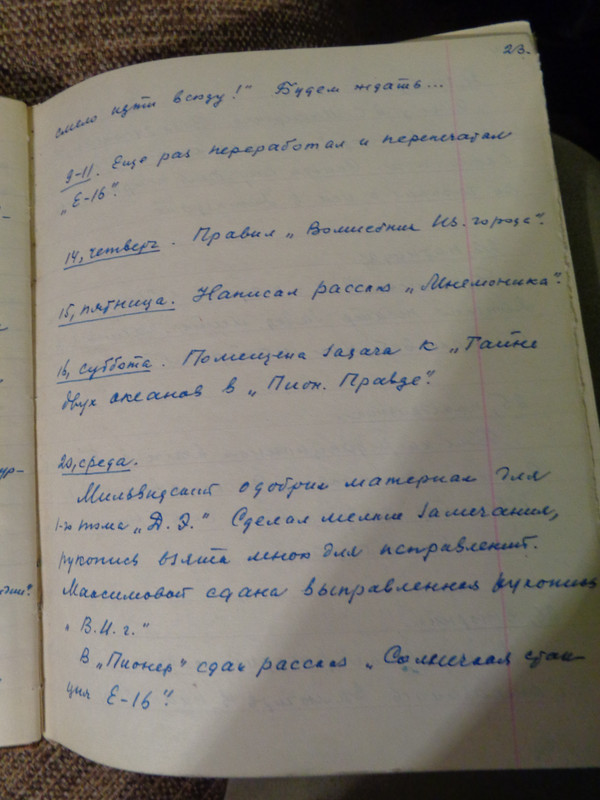 23.
смело идти всюду!" Будем ждать...
9-11. Еще раз переработал и перепечатал
„Е-16".
14, четверг. Правил „Волшебник Из. города".
15, пятница. Написал рассказ „Мнемоника".
16, суббота. Помещена задача к „Тайне
двух океанов" в „Пион. Правде".
20, среда.
Мильвидский одобрил материал для
1-го тома „Д. Э." Сделал мелкие замечания,
рукопись взята мною для исправлений.
Максимовой сдана выправленная рукопись
„В.И.г."
В „Пионер" сдан рассказ „Солнечная стан-
ция Е-16".